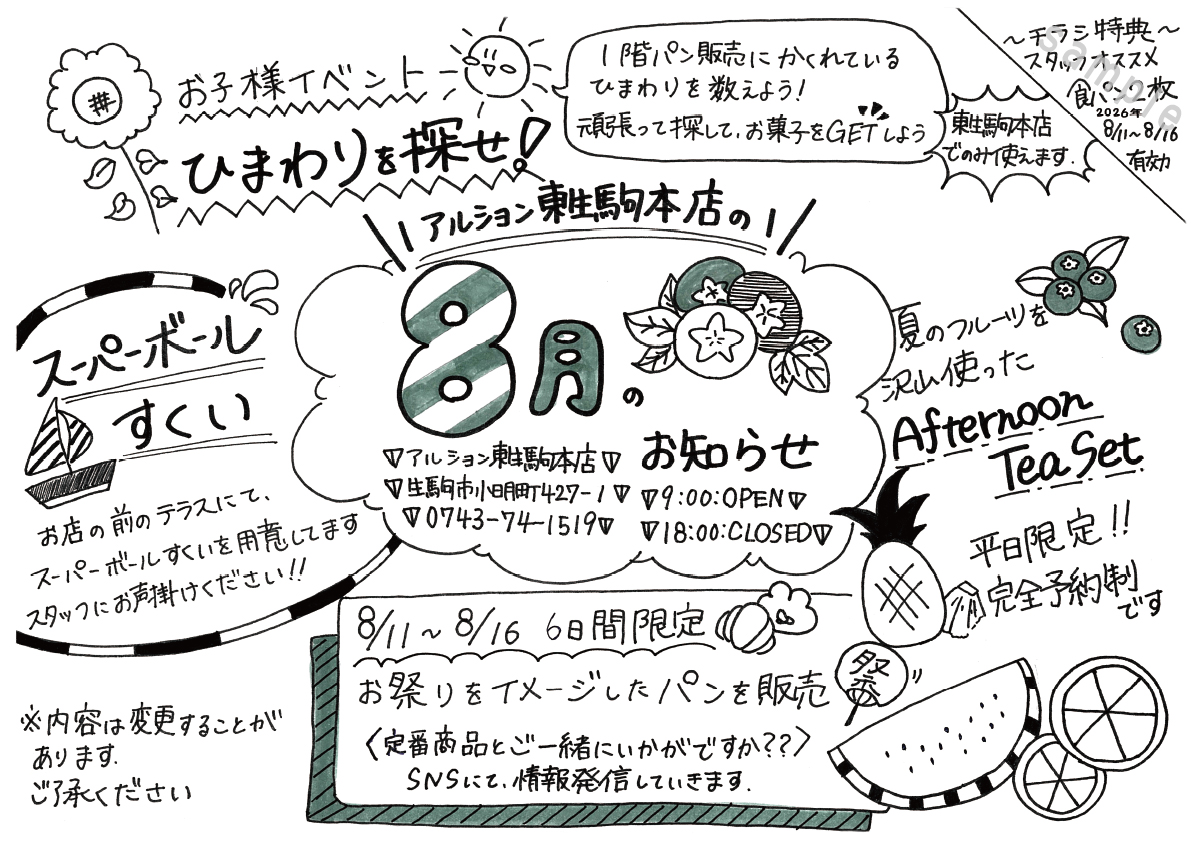 お子様イベント
ひまわりを探せ!
1階パン販売にかくれている
ひまわりを数えよう!
頑張って探して、お菓子をGETしよう
東生駒本店
でのみ使えます.
~チラシ特典~
スタッフオススメ
食パン2枚
2026年
8/11~8/16
有効
sample
アルション東生駒本店の
8月の
お知らせ
▽アルション東生駒本店▽
▽生駒市小明町427-1▽
▽0743-74-1519▽
▽9:00:OPEN▽
▽18:00:CLOSED▽
スーパーボール
すくい
お店の前のテラスにて、
スーパーボールすくいを用意してます
スタッフにお声掛けください!!
夏のフルーツを
沢山使った
Afternoon
Tea Set
平日限定!!
完全予約制
です
8/11~8/16 6日間限定
お祭りをイメージしたパンを販売
〈定番商品とご一緒にいかがですか??〉
SNSにて、情報発信していきます.
祭
※内容は変更することが
あります.
ご了承ください